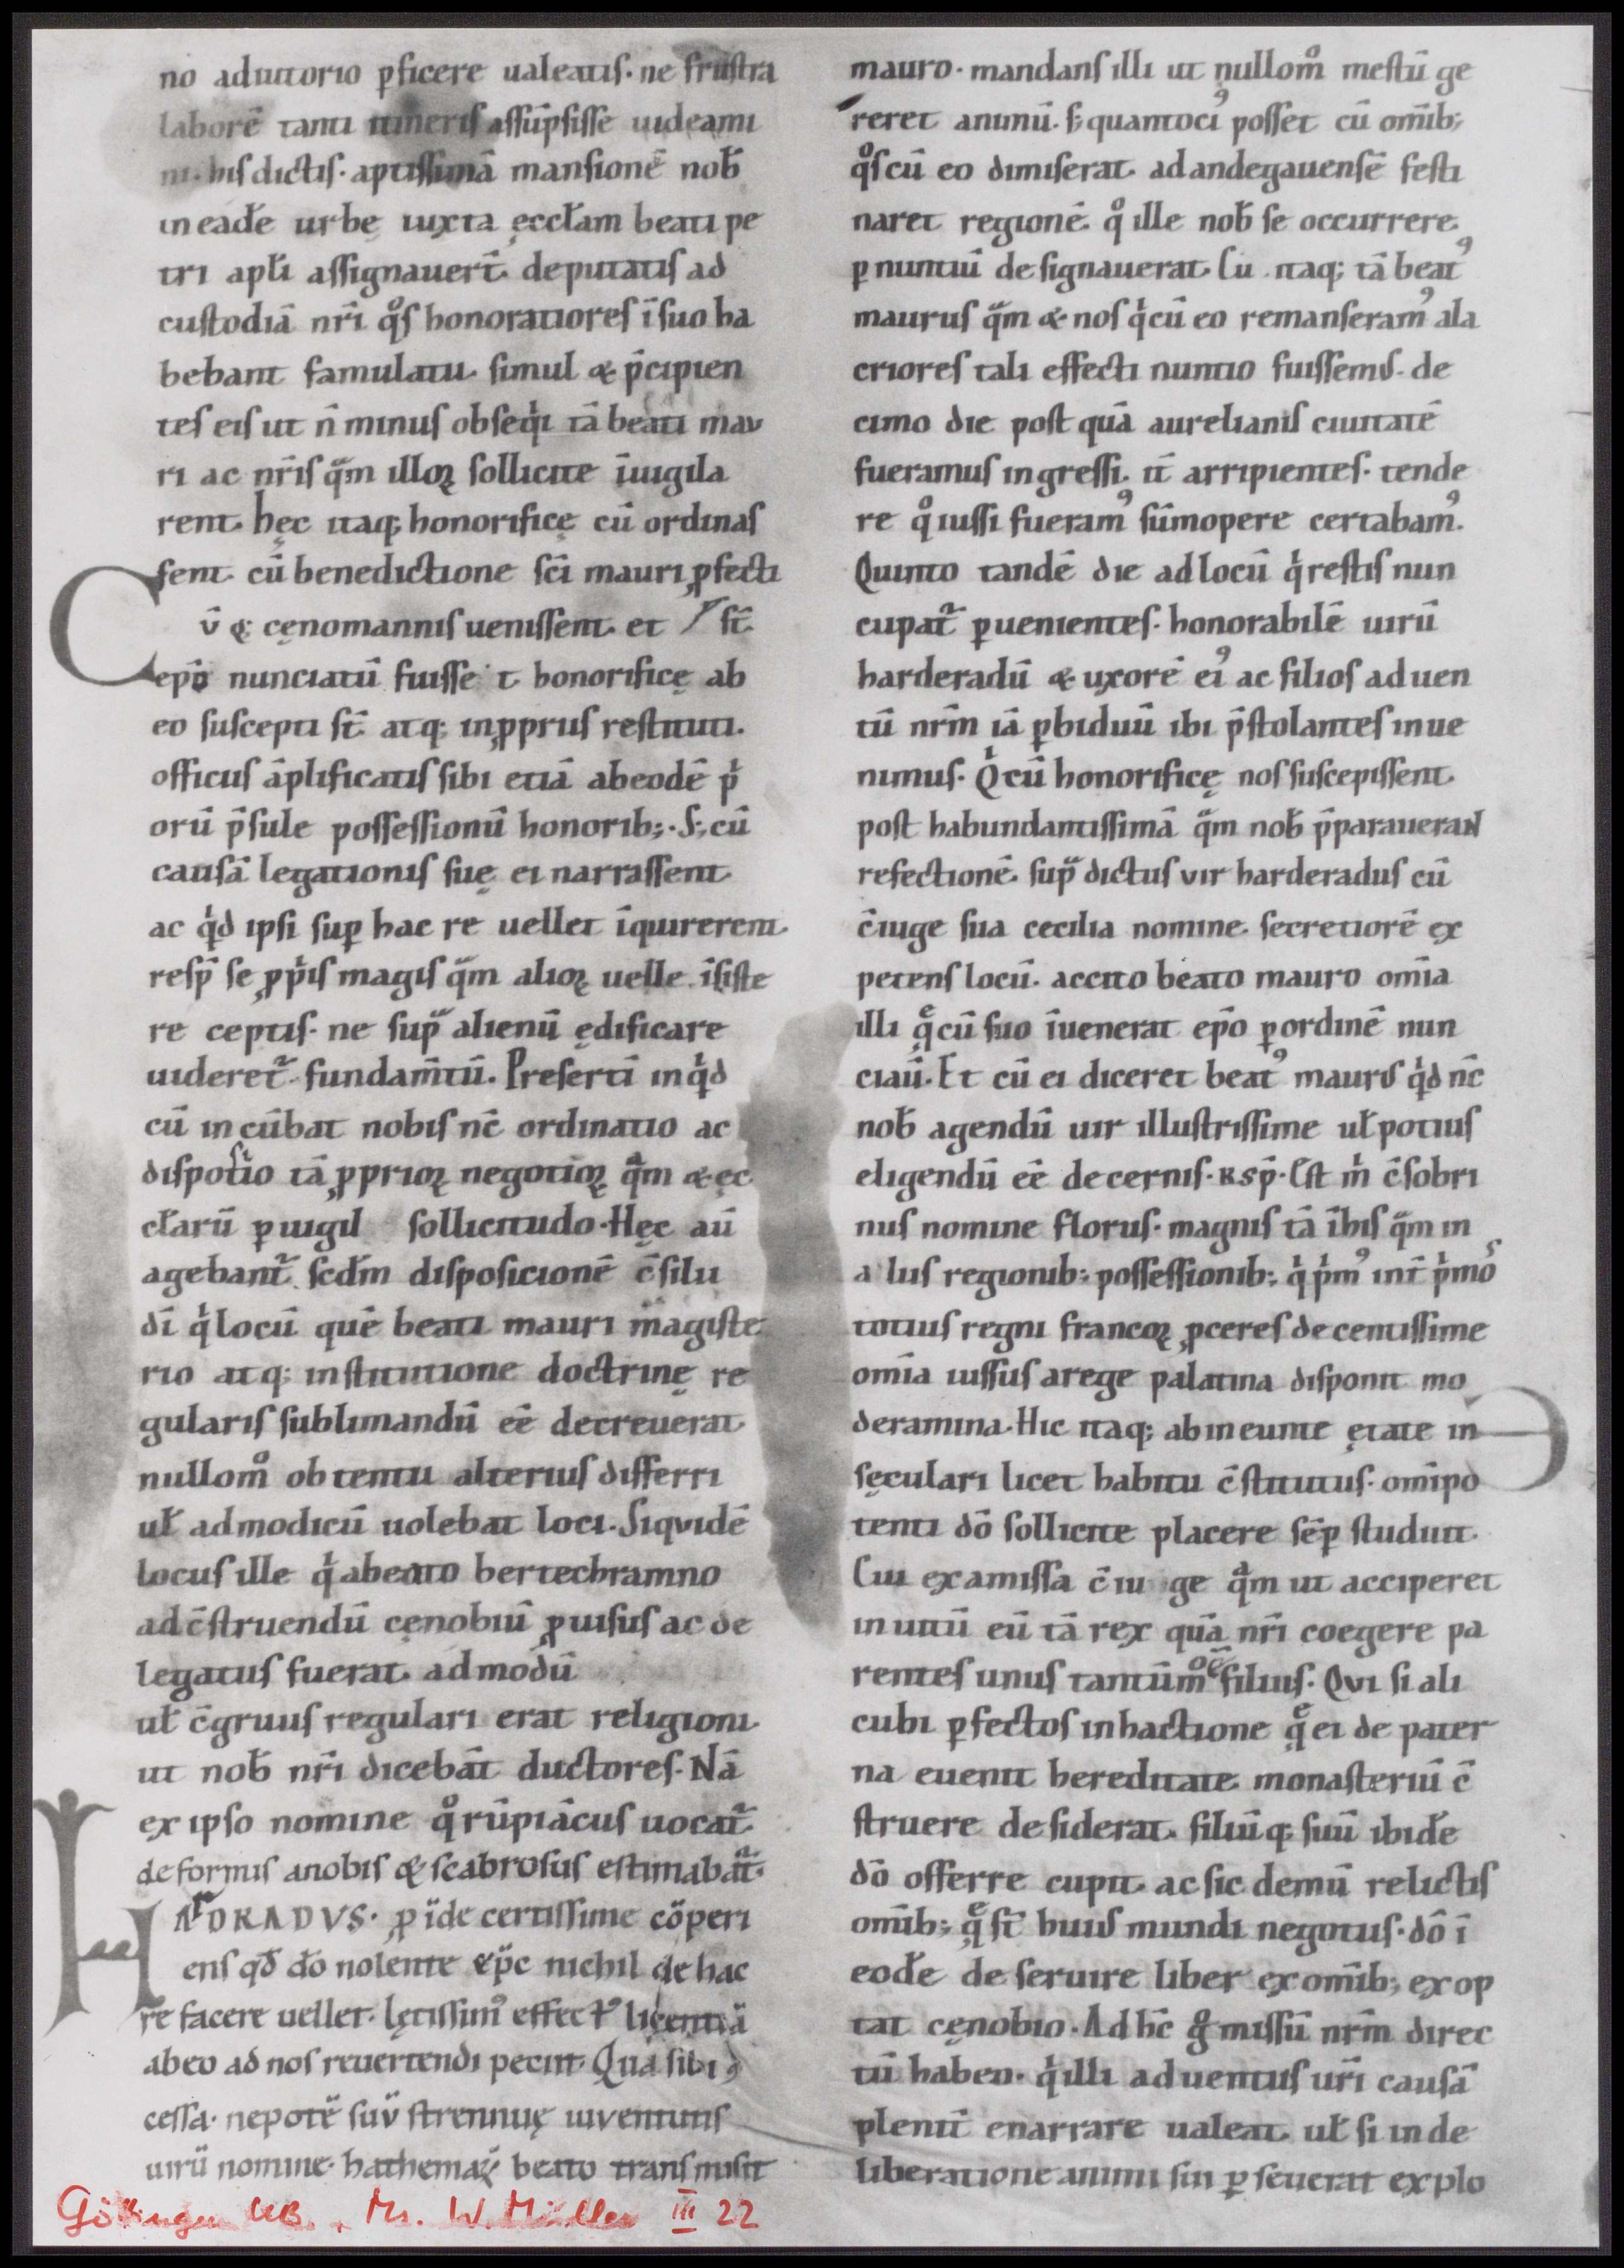 no adiutorio ꝑficere ualeatis· ne frustra
laborē tanti itineris assūpsisse uideami
ni· his dictis· aptissimā mansionē nob̄
in eadē urbe iuxta ęccłam beati pe
tri apłi assignauer̄t· deputatis ad
custodiā nr̄i qͦs honoratiores ī suo ha
bebant famulatu· simul & p̄cipien
tes eis ut n̄ minus obseqͥi tā beati mau
ri ac nr̄is qᵃm illoꝝ sollicite īuigila
rent· hęc itaq; honorificę cū ordinas
sent· cū benedictione sc̄i mauri ꝓfecti
Cv̄ q; cęnomannis uenissent· et / st̄
ep̄o nunciatū fuisset· honorificę ab
eo suscepti st̄ atq; in ꝓpriis restituti·
officiis āplificatis sibi etiā ab eodē pͥ
orū p̄sule possessionū honorib;· S; cū
causā legationis suę ei narrassent·
ac qͥd ipsi suꝑ hac re uellet īquirerent·
resp̄ se ꝓpͥis magis qᵃm alioꝝ uelle īsiste
re ceptis· ne supᵃ alienū ędificare
uideret᷑· fundam̄tū. Presertī in qͥd
cū incūbat nobis nc̄ ordinatio ac
dispositͥo tā ꝓprioꝝ negotioꝝ qᵃm & ęc
cłarū ꝑuigil sollicitudo· Hęc aū
agebant᷑ scd̄m disposicionē c̄silii
dī qͥ locū quē beati mauri magiste
rio atq; institutione doctrinę re
gularis sublimandū eē decreuerat·
nullomͦ obtentu alterius differri
uł ad modicū uolebat loci· Siqvidē
locus ille qͥ a beato bertechramno
ad c̄struendū cęnobiū ꝓuisus ac de
legatus fuerat· ad modū
uł c̄gruus regulari erat religioni·
ut nob̄ nr̄i dicebāt ductores· Nā
ex ipso nomine qͦ rūpiācus uocat᷑
deformis a nobis & scabrosus estimabat᷑·
HARDRADVS· ꝓīde certissime cōperi
ens qd̄ do nolente ep̄c nichil de hac
re facere uellet· lętissimꝰ effectꝰ licentiā
ab eo ad nos reuertendi petiit· Qua sibi ꝯ
cessa· nepotē suū strennuę iuventutis
uirū nomine· hathemaꝝ beato transmisit
mauro· mandans illi ut nullomͦ mestū ge
reret animū· s; quantociꝰ posset cū om̄ib;
qͦs cū eo dimiserat· ad andegauensē festi
naret regionē· qͦ ille nob̄ se occurrere
ꝑ nuntiū designauerat· Cū itaq; tā beatꝰ
maurus qᵃm & nos qͥ cū eo remanseramꝰ ala
criores tali effecti nuntio fuissemus· de
cimo die post quā aurelianis ciuitatē
fueramus ingressi· it̄ arripientes· tende
re qͦ iussi fueramꝰ sūmopere certabamꝰ.
Quinto tandē die ad locū qͥ restis nun
cupat᷑ ꝑuenientes· honorabilē uirū
harderadū & uxorē eiꝰ ac filios aduen
tū nr̄m iā ꝑ biduū ibi p̄stolantes inue
nimus· Qͥ cū honorificę nos suscepissent·
post habundantissimā qᵃm nob̄ p̄parauerant
refectionē· supᵃdictus vir harderadus cū
c̄iuge sua cecilia nomine· secretiorē ex
petens locū· accito beato mauro om̄ia
illi qͤ cū suo īuenerat ep̄o ꝑ ordinē nun
ciaū· Et cū ei diceret beatꝰ maurus qͥd nc̄
nob̄ agendū uir illustrissime uł potius
eligendū eē decernis· Rsp̄· Est mͥ c̄sobri
nus nomine florus· magnis tā ībis qᵃm in
aliis regionib; possessionib; qͥ pͥmꝰ int̄ pͥmos
totius regni francoꝝ ꝓceres decentissime
om̄ia iussus a rege palatina disponit mo
deramina· Hic itaq; ab ineunte ętate in
sęculari licet habitu c̄stitutus· om̄ipo
tenti dō sollicite placere sēꝑ studuit·
Cui ex amissa c̄iuge qᵃm ut acciperet
inuitū eū tā rex quā nr̄i coegere pa
rentes unus tantūmͦ ē filius· Qvi si ali
cubi ꝑfectos in hac tione qͤ ei de pater
na euenit hereditate monasteriū c̄
struere desiderat· filiūq; suū ibidē
dō offerre cupit· ac sic demū relictis
om̄ib; qͤ st̄ huius mundi negotiis· dō ī
eodē deseruire liber ex om̄ib; exop
tat cęnobio· Ad hc̄ gͦ missū nr̄m direc
tū haben· qͥ illi aduentus ur̄i causā
pleniī enarrare ualeat· uł si in de
liberatione animi sui ꝑseuerat explo
Göttingen UB., Ms. W. Müller III 22